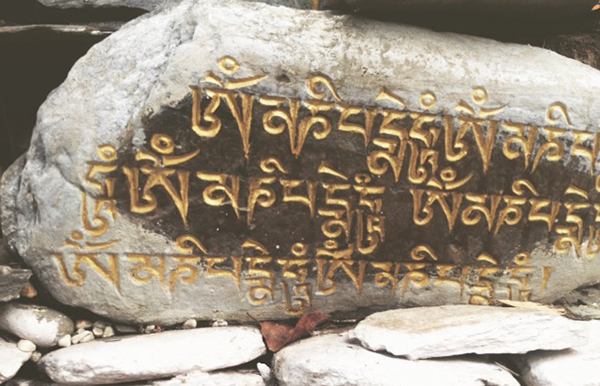 ཨོཾ་མ་ཎི་པདྨེ་ཧཱུྃ་ཨོཾ་མ་ཎི་པ
ཧཱུྃ་ཨོཾ་མ་ཎི་པདྨེ་ཧཱུྃ་ཨོཾ་མ་ཎི་པདྨེ
ཨོཾ་མ་ཎི་པདྨེ་ཧཱུྃ་ཨོཾ་མ་ཎི་པདྨེ་ཧཱུྃ།